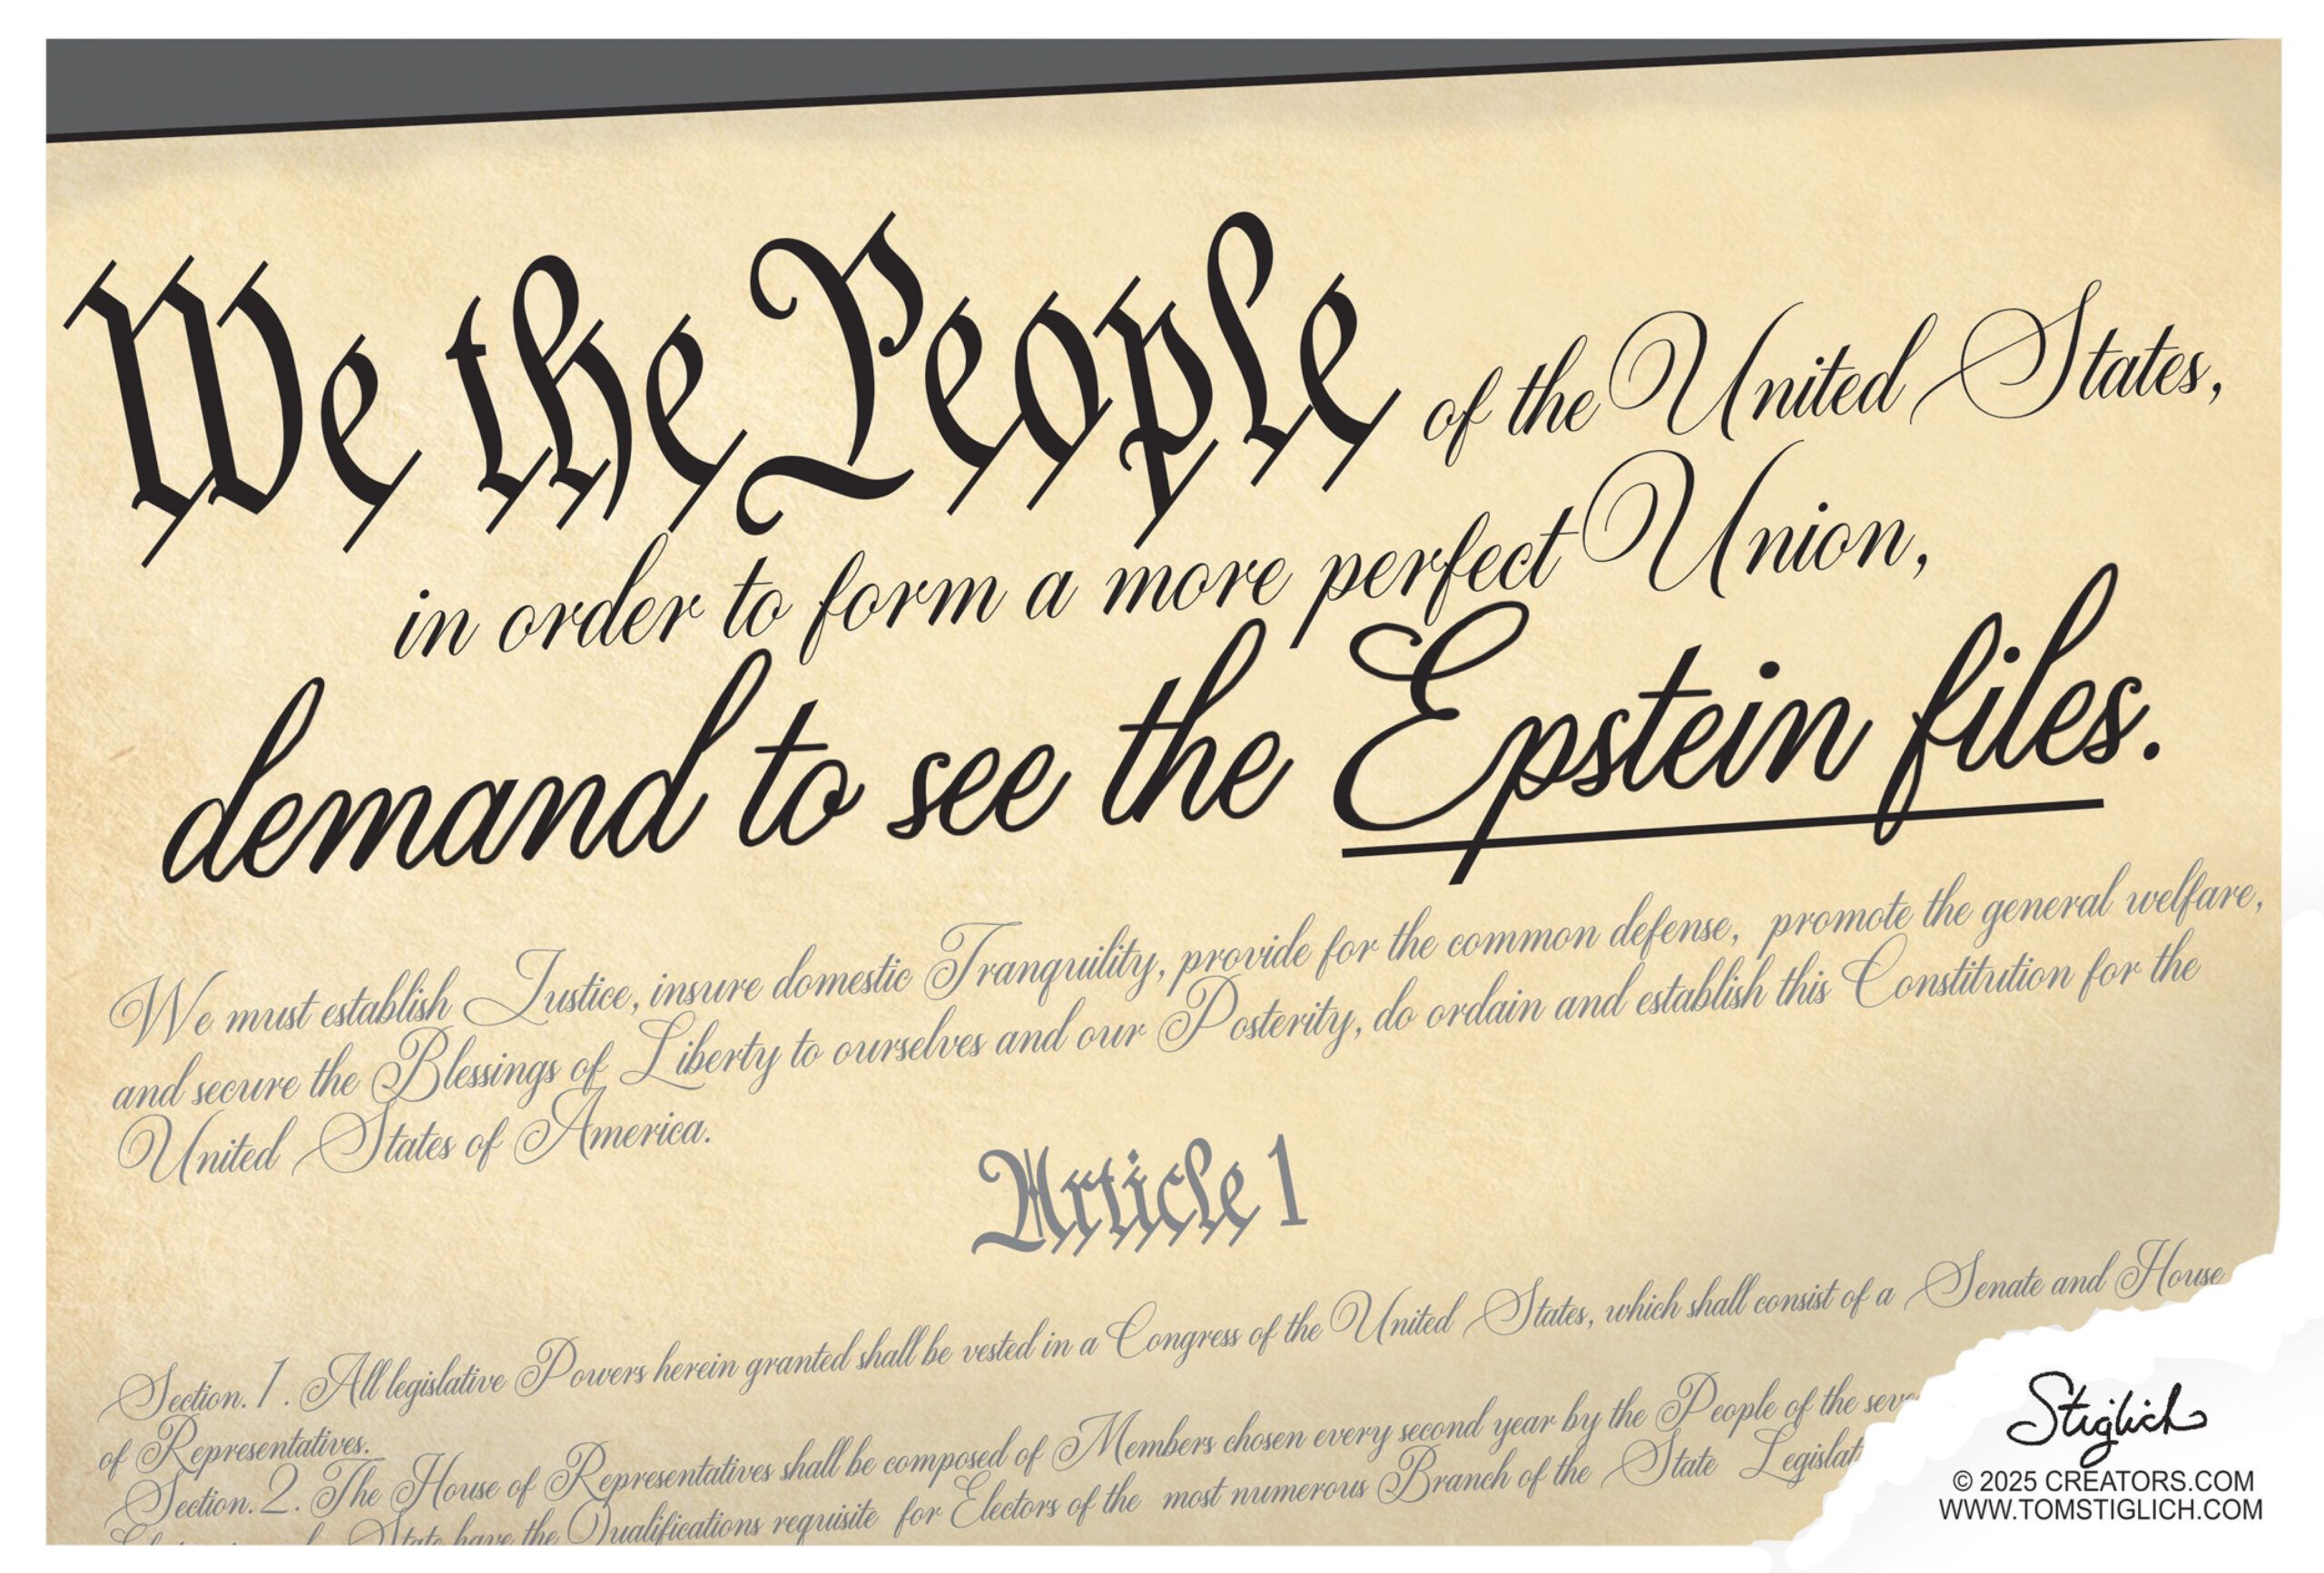 We the People of the United States,
in order to form a more perfect Union,
demand to see the Epstein files.
We must establish Justice, insure domestic Tranquility, provide for the common defense, promote the general welfare,
and secure the Blessings of Liberty to ourselves and our Posterity, do ordain and establish this Constitution for the
United States of America.
Article 1
Section. 1. All legislative Powers herein granted shall be vested in a Congress of the United States, which shall consist of a Senate and House
of Representatives.
Section. 2. The House of Representatives shall be composed of Members chosen every second year by the People of the
for Electors of the most numerous Branch of the State
State have the Qualifications requisite
Stiglich
© 2025 CREATORS.COM
WWW.TOMSTIGLICH.COM